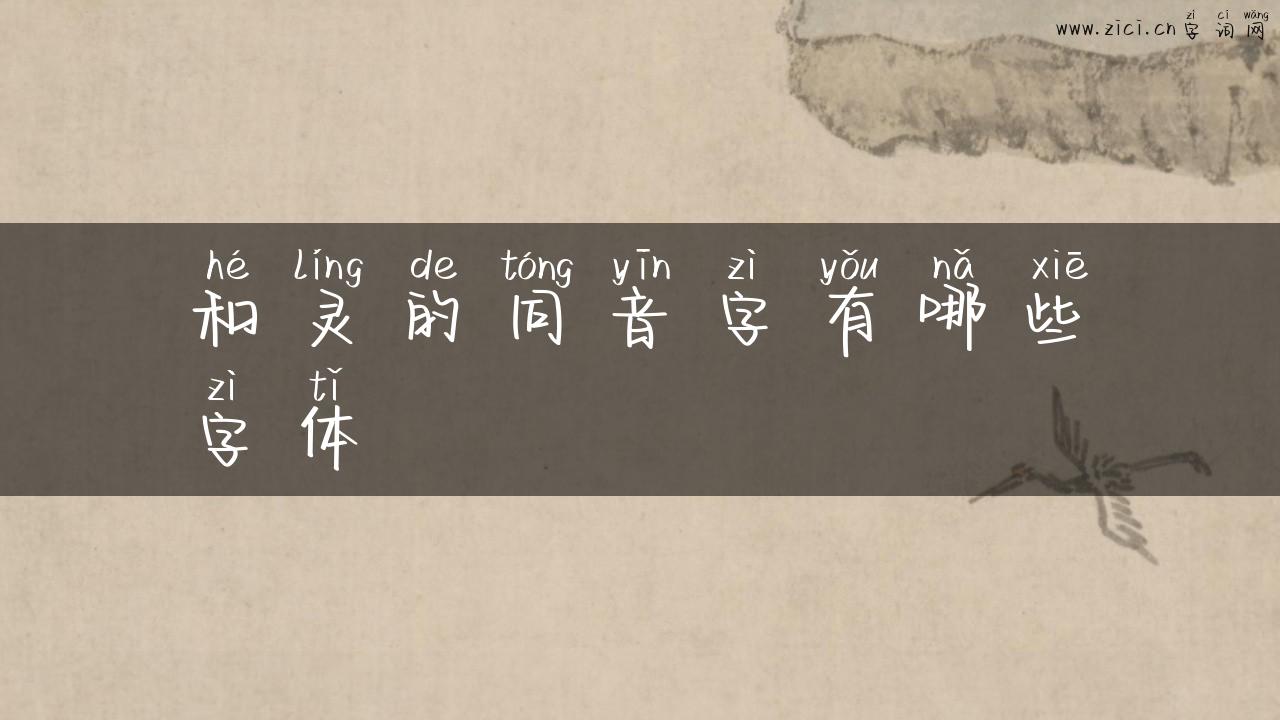 zì cí wǎng
www.zici.cn 字词网
hé líng de tóng yīn zì yǒu nǎ xiē
和灵的同音字有哪些
zì tǐ
字体